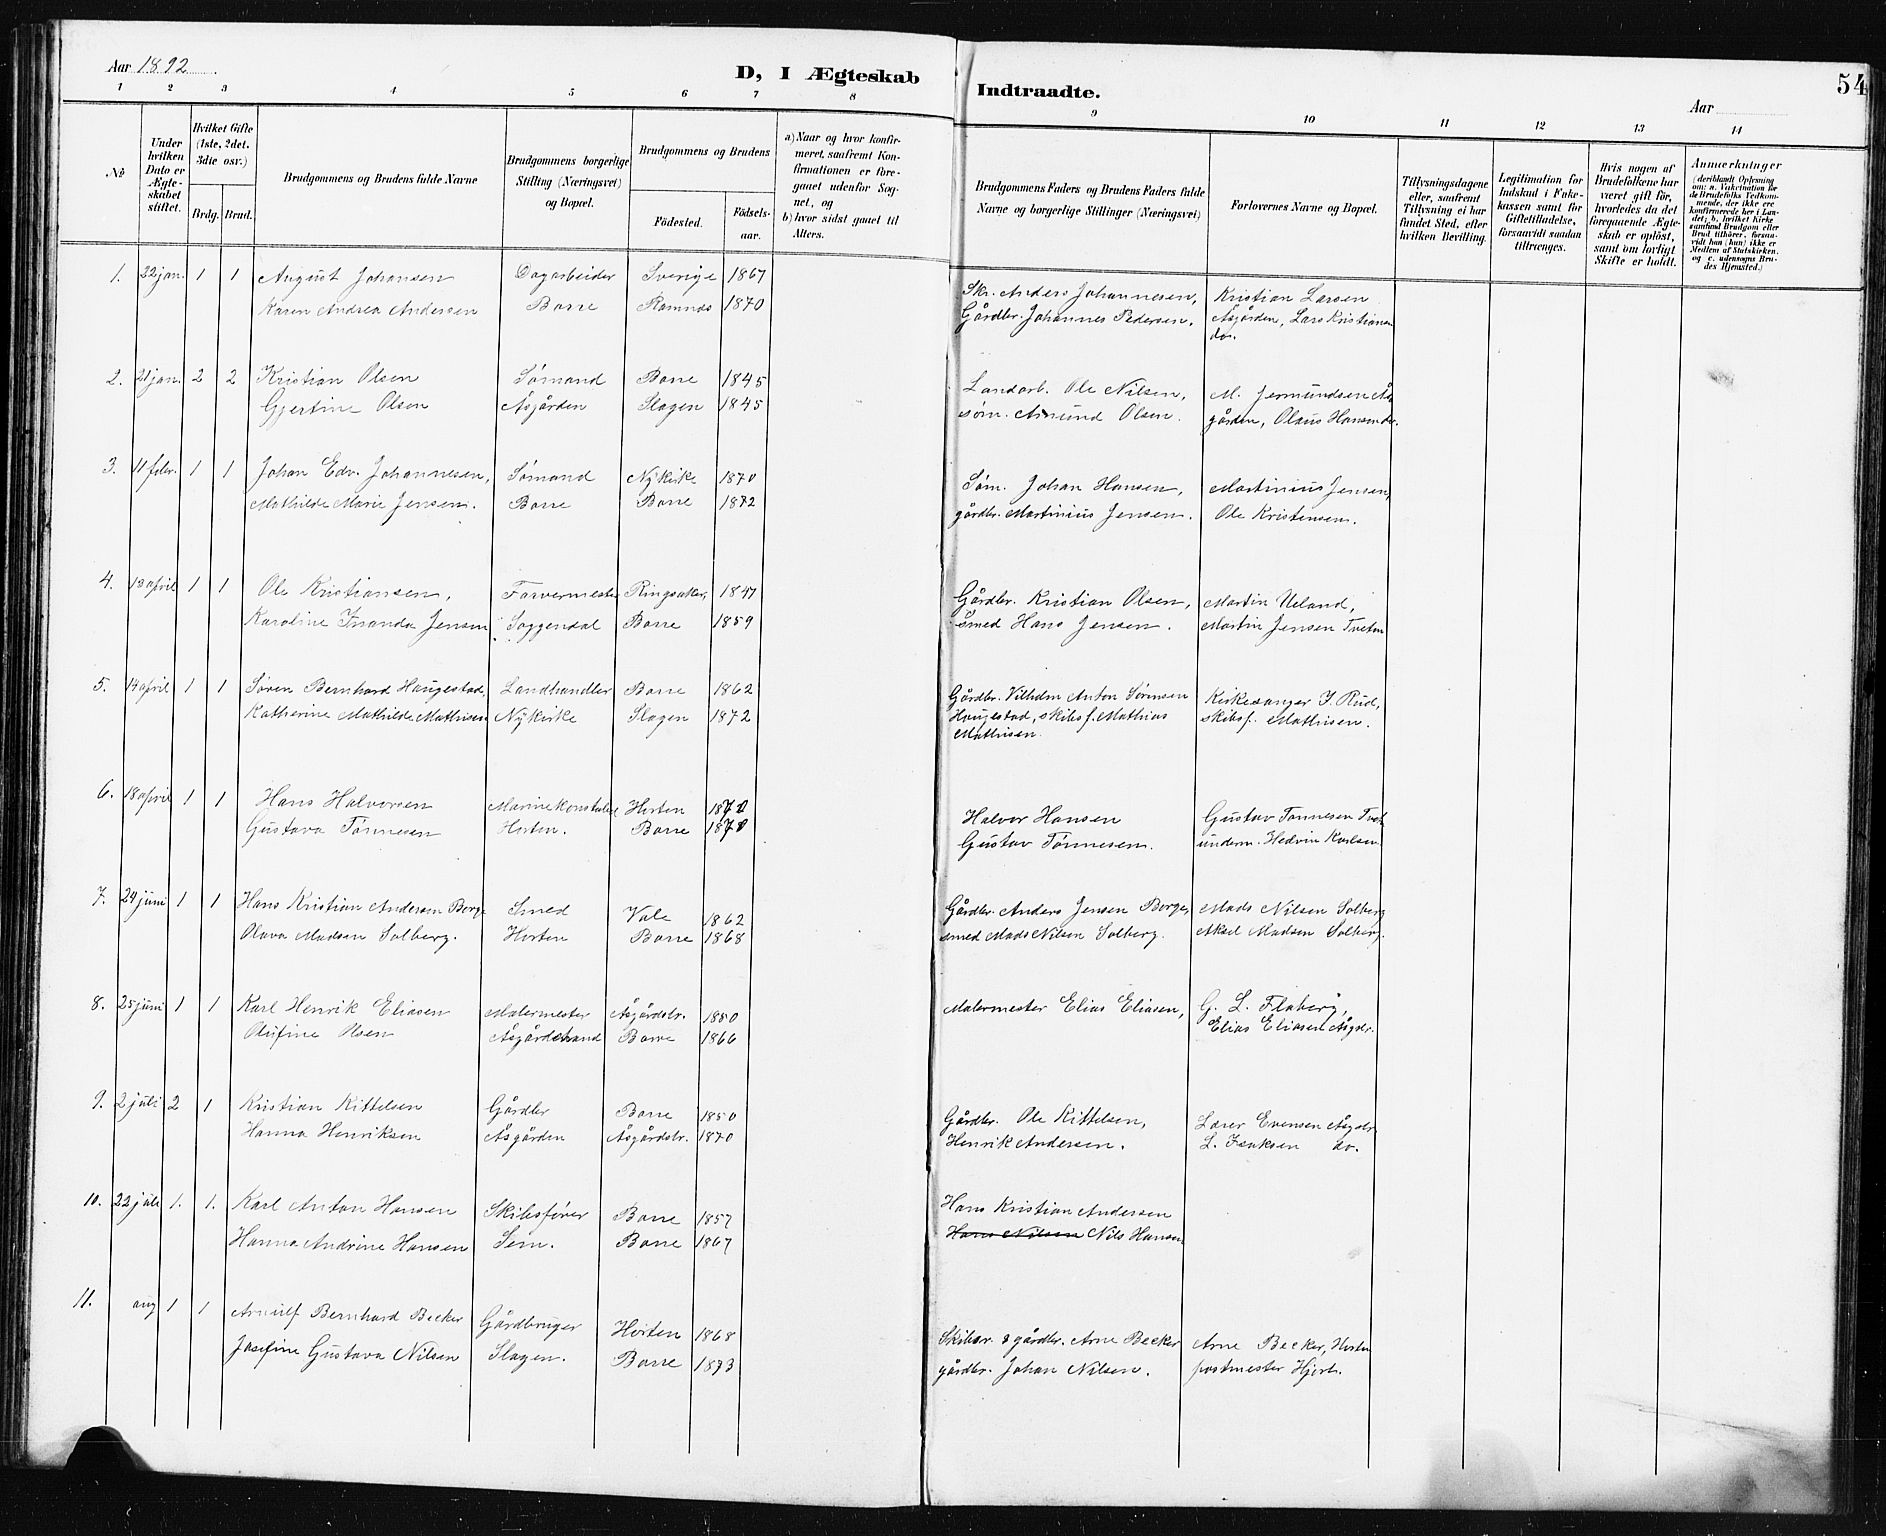 Aar 1892.
D, I Ægteskab Indtraadte.
Aar
54
1 2 3 4 5 6 7 8 9 10 11 12 13 14
No
Under hvilken Dato er Ægteskabet stiftet.
Hvilket Gifte (1ste, 2det, 3die osv.)
Brdg. Brud.
Brudgommens og Brudens fulde Navne
Brudgommens borgerlige Stilling (Næringsvei) og Bopæl.
Brudgommens og Brudens
Fødested.
Fødselsaar.
a) Naar og hvor konfirmeret, saafremt Konfirmationen er foregaaet udenfor Sognet, og
b) hvor sidst gaaet til Alters.
Brudgommens Faders og Brudens Faders fulde Navne og borgerlige Stillinger (Næringsvei)
Forlovernes Navne og Bopæl.
Tillysningsdagene eller, saafremt Tillysning ei har fundet Sted, efter hvilken Bevilling.
Legitimation for Indskud i Enkekassen samt for Giftetilladelse, forsaavidt saadan tiltrænges.
Hvis nogen af Brudefolkene har været gift før, hvorledes da det foregaaende Ægteskab er opløst, samt om lovligt Skifte er holdt.
Anmærkninger
(deriblandt Oplysning om: a. Vakcination for de Brudefolks Vedkommende, der ikke ere konfirmerede her i Landet; b. hvilket Kirkesamfund Brudgom eller Brud tilhører, forsaavidt han (hun) ikke er Medlem af Statskirken, og c. udensogns Brudes Hjemsted.)
1. 22 jan. 1 1 August Johansen Dagarbeider Sverige 1867 Skr. Anders Johannesen, Kristian Larsen
Karen Andrea Andersen Borre Ramnes 1870 Gårdbr. Johannes Pedersen. Åsgården, Lars Kristiansen
do.
2. 21 jan. 2 2 Kristian Olsen Sømand Borre 1845 Landarb. Ole Nilsen, M. Jermundsen Ås
Gjertine Olsen Åsgården Slagen 1845 søm. Amund Olsen. gården, Olaus Hansen do.
3. 11 febr. 1 1 Johan Edv. Johannesen, Sømand Nykirke 1870 Søm. Johan Hansen, Martinius Jensen,
Mathilde Marie Jensen. Borre Borre 1872 gårdbr. Martinius Jensen. Ole Kristensen.
4. 13 april 1 1 Ole Kristiansen, Farvermester Ringsaker, 1847 Gårdbr. Kristian Olsen, Martin Ueland,
Karoline Jensen Soggendal Borre 1859 Smed Hans Jensen. Martin Jensen Tveten
5. 14 april 1 1 Søren Bernhard Haugestad, Landhandler Borre 1862 Gårdbr. Vilhelm Anton Sørensen Kirkesanger J. Rud,
Katherine Mathilde Mathisen Nykirke Slagen 1872 Haugestad, skibsf. Mathias skibsf. Mathisen.
Mathisen.
6. 18 april 1 1 Hans Halvorsen Marinekonstabel Horten Halvor Hansen Gustav Tønnesen
Gustava Tønnesen Horten. Borre Gustav Tønnesen. underm. Hedvin Karlsen
7. 24 juni 1 1 Hans Kristian Andersen Borge Smed Vale 1862 Gårdbr. Anders Jensen Borge, Mads Nilsen Solberg
Olava Madsen Solberg. Horten Borre 1868 smed Mads Nilsen Solberg. Aksel Madsen Solberg.
8. 25 juni 1 1 Karl Henrik Eliasen Malermester Åsgårdstr. Malermester Elias Eliasen, G. L. Flaberg,
Olufine Olsen Åsgårdstrand Borre 1866 Elias Eliasen Åsgdr.
9. 2 juli 2 1 Kristian Kittelsen Gårdbr Borre 1850 Gårdbr. Ole Kittelsen, Lærer Evensen Åsgdr.
Hanna Henriksen Åsgården Åsgårdstr. 1870 Henrik Andersen. L. Isaksen do.
10. 22 juli 1. 1. Karl Anton Hansen Skibsfører Borre 1857 Hans Kristian Andersen
Hanna Andrine Hansen Sem. Borre 1867 Hans Nilsen Nils Hansen
11. aug 1 1 Arnulf Bernhard Becker Gårdbruger Horten 1868 Skibsr. & gårdbr. Arne Becker Arne Becker, Horten
Josefine Gustava Nilsen Slagen. Borre 1873 gårdbr. Johan Nilsen. postmester Hjort.